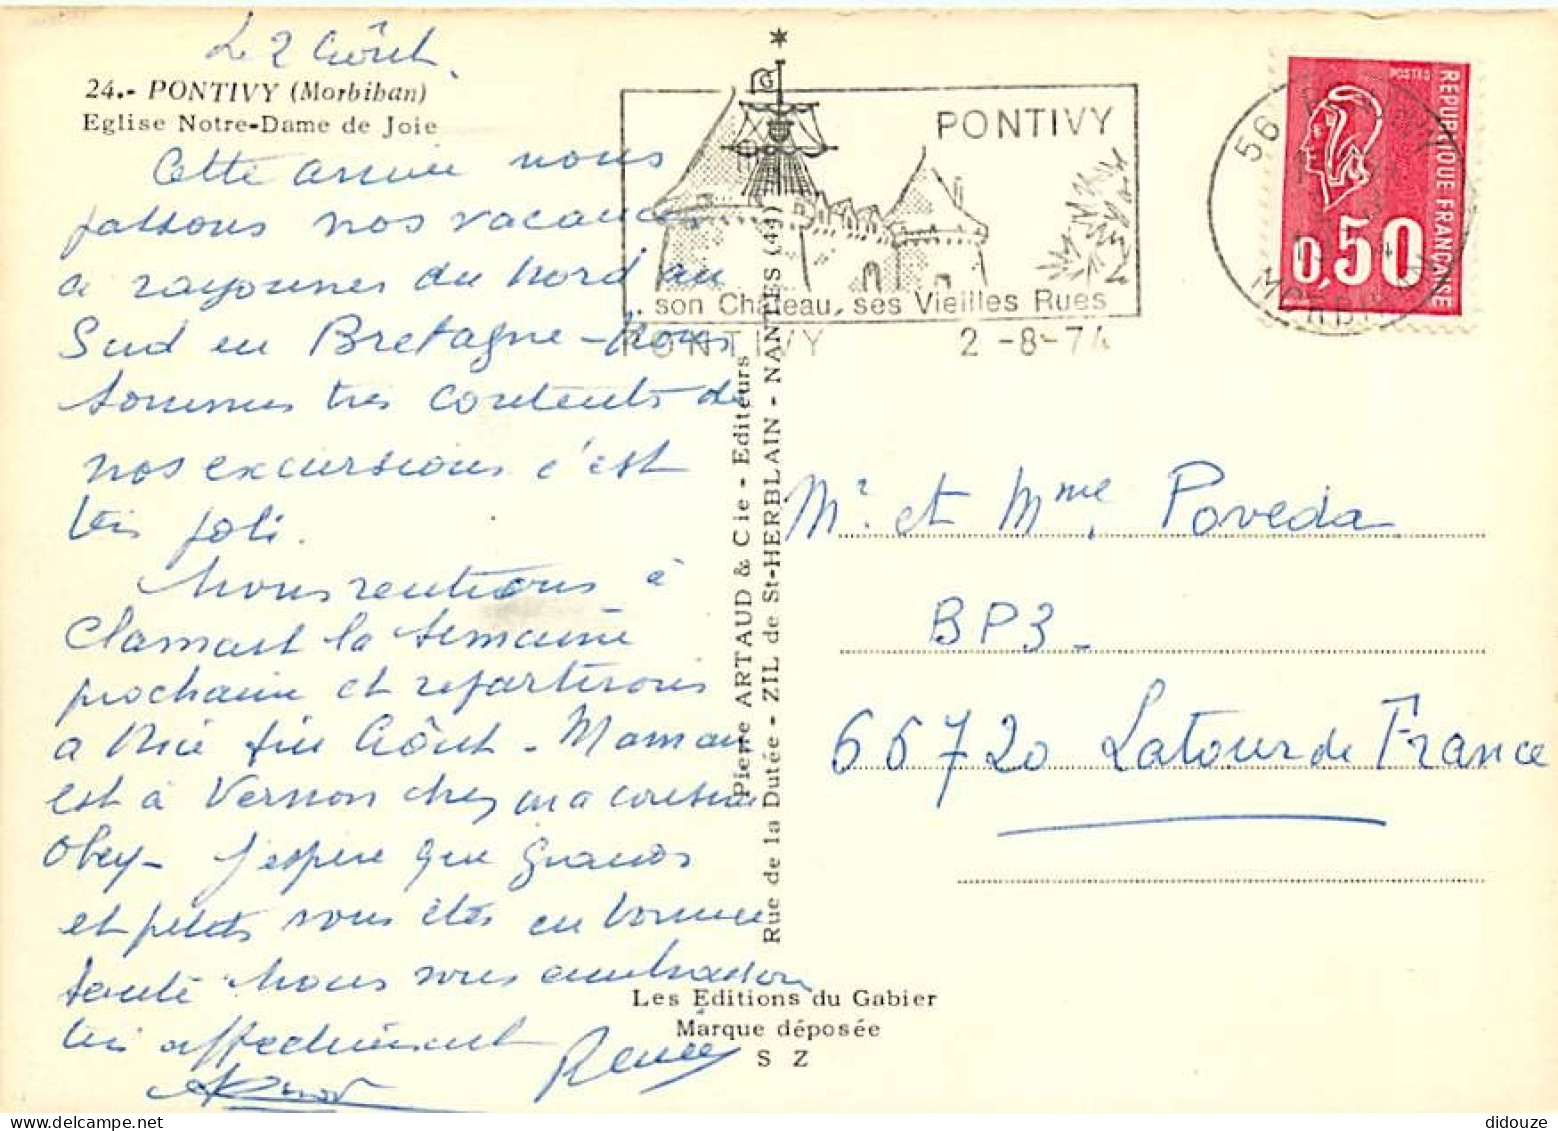 Le 2 Août
24.- PONTIVY (Morbihan)
Eglise Notre-Dame de Joie
Cette année nous
passons nos vacances
a rayonner du Nord au
Sud en Bretagne - Nous
sommes très contents de
nos excursions c'est
très joli.
Nous rentrons à
Clamart la semaine
prochaine et repartirons
a Nice fin Août - Maman
est à Vernon chez ma cousine
Obey - J'espère que grands
et petits vous êtes en bonne
santé Nous vous embrassons
très affectueusement
Renée
PONTIVY
.. son Château, ses Vieilles Rues
PONTIVY 2-8-74
56 PONTIVY
MORBIHAN
POSTES
REPUBLIQUE FRANÇAISE
0,50
Pierre ARTAUD & Cie - Editeurs
Rue de la Dutée - ZIL de St-HERBLAIN - NANTES (44)
Mr. et Mme Poveda
BP3-
66720 Latour de France
Les Editions du Gabier
Marque déposée
S Z
didouze